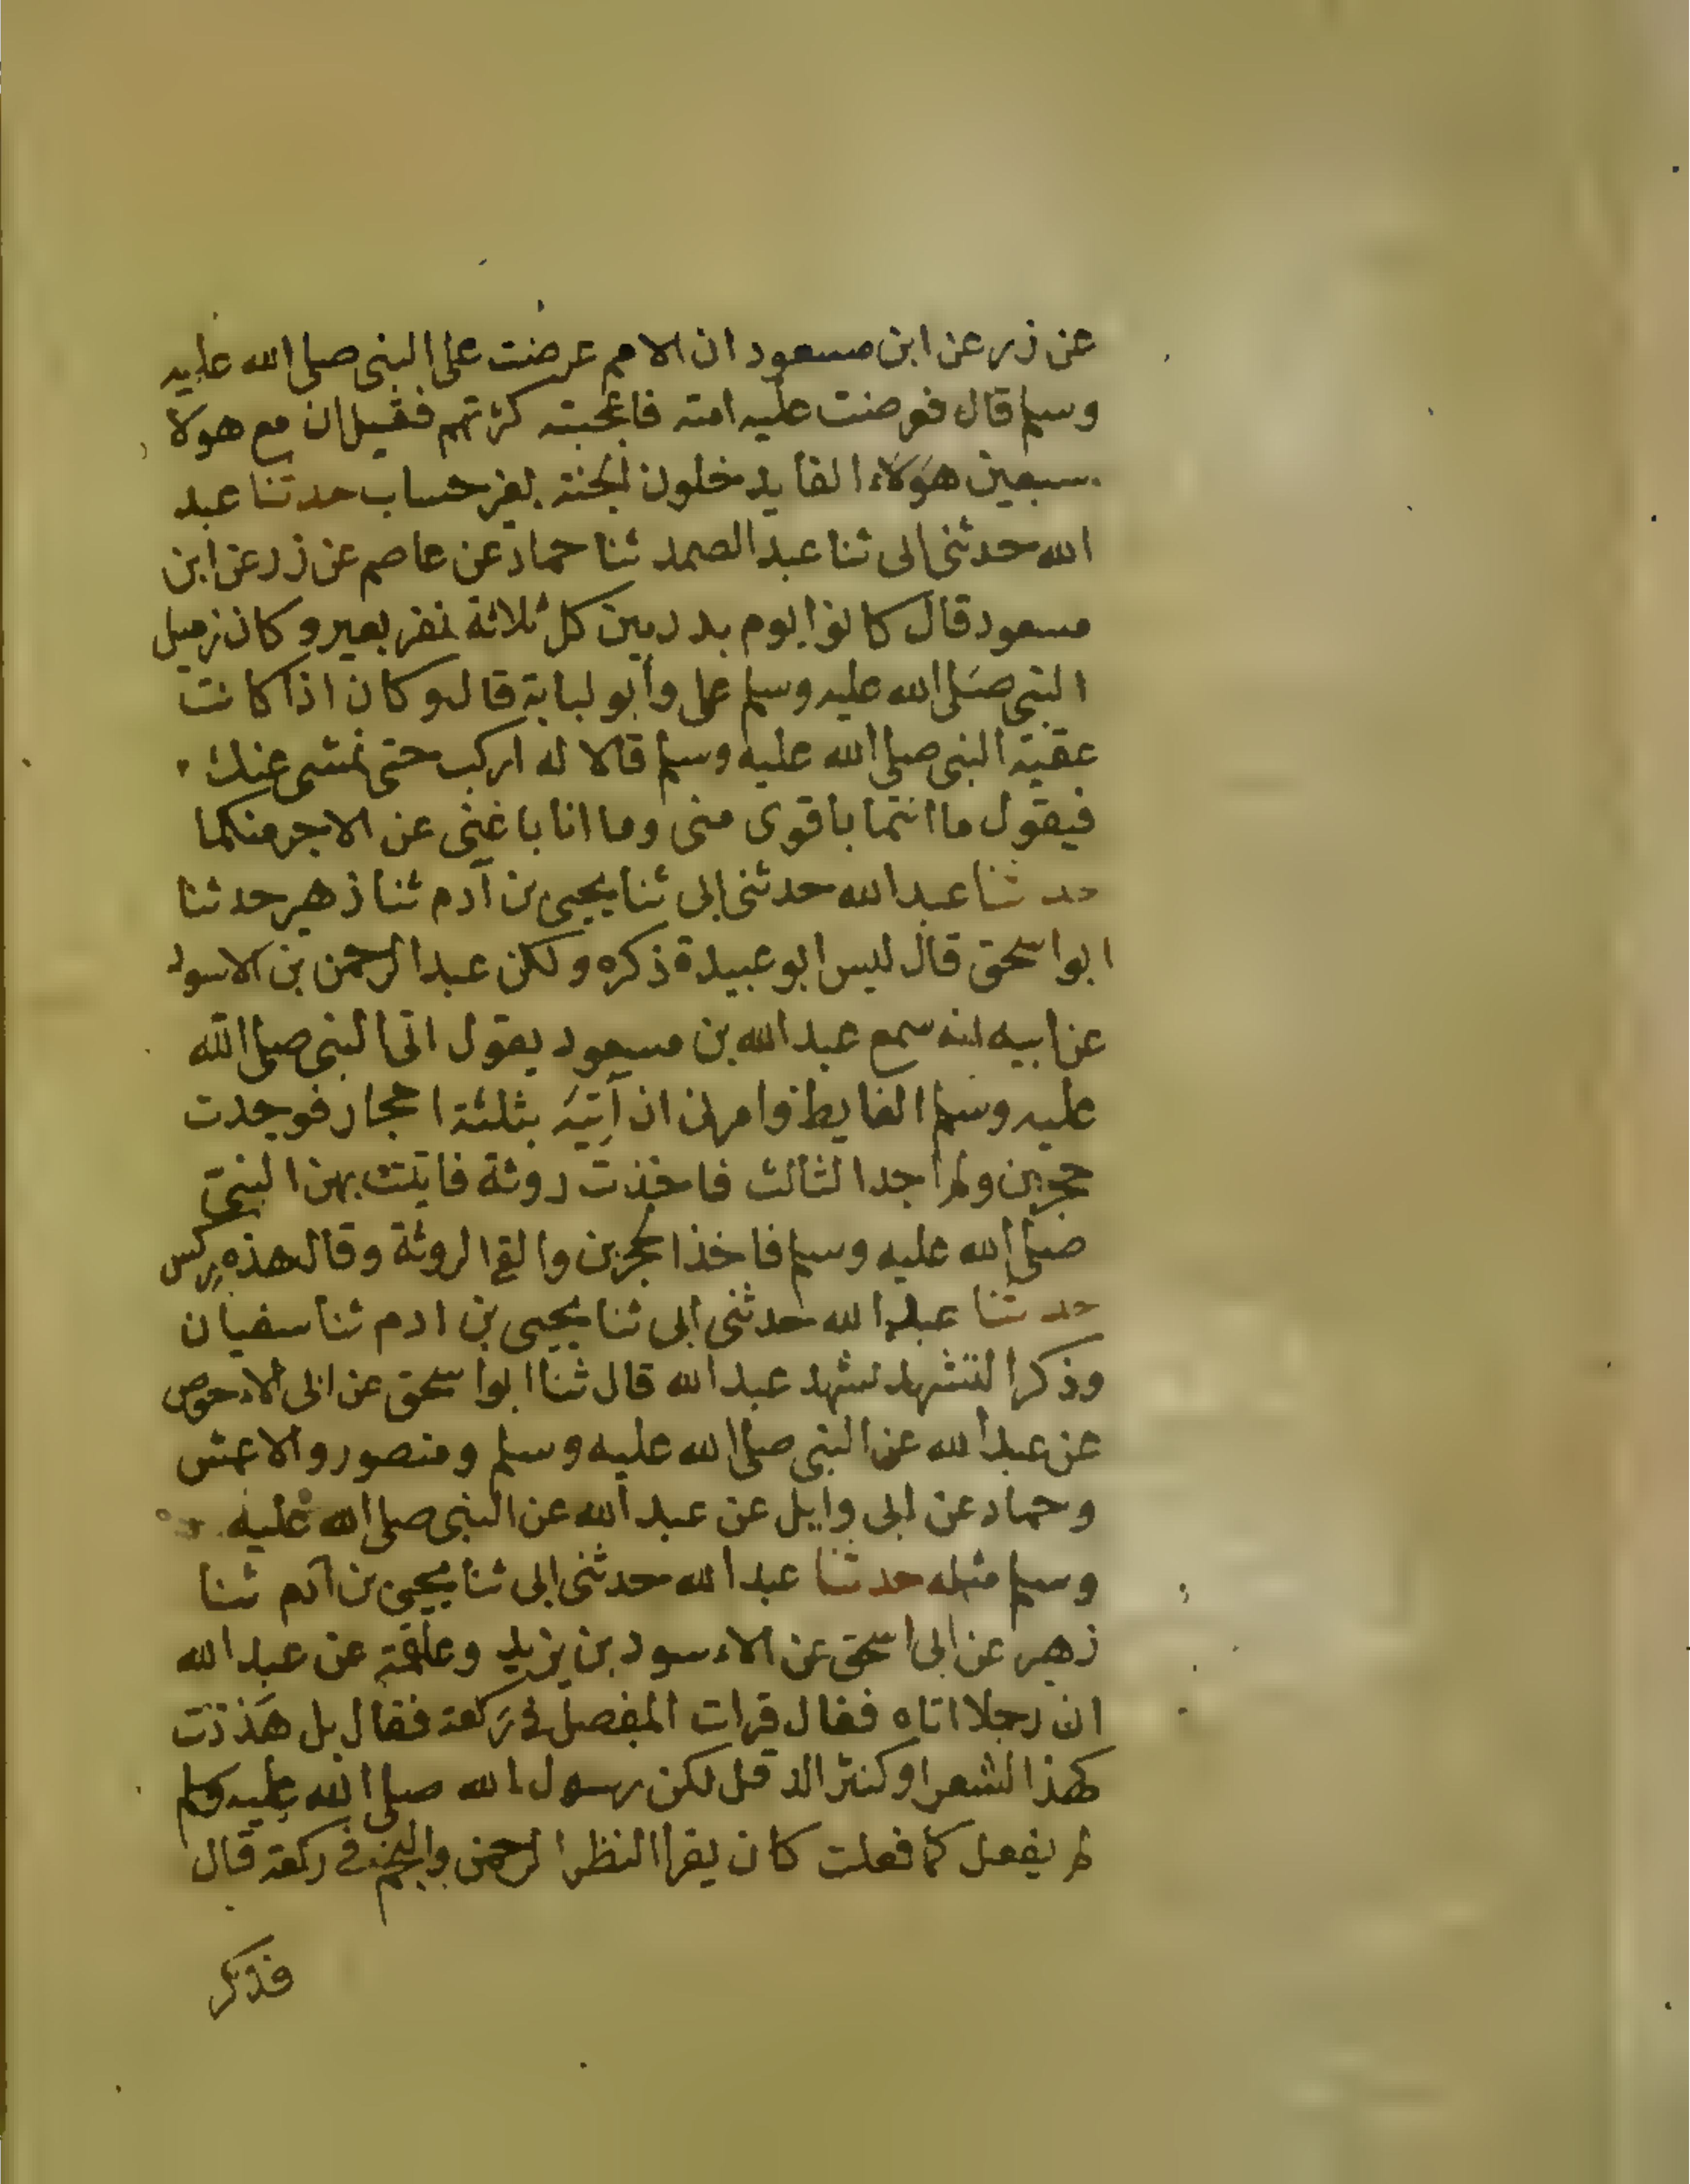 عن زر عن ابن مسعود ان الامم عرضت على النبى صلى الله عليه
وسلم قال فعرضت عليه امته فاعجبته كثرتهم فقيل ان مع هولا
سبعين هَوَلَاء الفا يدخلون الجنة بغير حساب حدثنا عبد
الله حدثنى ابى ثنا عبد الصمد ثنا حماد عن عاصم عن زر عن ابن
مسعود قال كانوا يوم بدر بين كل ثلاثة نفر بعير وكان زميل
النبى صلى الله عليه وسلم على وأبو لبابة قال وكان اذا كانت
عقبة النبى صلى الله عليه وسلم قالا له اركب حتى نمشى عنك
فيقول ما انتما باقوى منى وما انا باغنى عن الاجر منكما
حدثنا عبد الله حدثنى ابى ثنا يحيى بن آدم ثنا زهير حدثنا
ابو اسحق قال ليس ابو عبيدة ذكره ولكن عبد الرحمن بن الاسود
عن ابيه انه سمع عبد الله بن مسعود يقول اتى النبى صلى الله
عليه وسلم الغايط وامرنى ان آتيَه بثلثة احجار فوجدت
حجرين ولم اجد الثالث فاخذت روثة فاتيت بهن النبىّ
صلى الله عليه وسلم فاخذ الحجرين والقى الروثة وقال هذه رِكس
حدثنا عبد الله حدثنى ابى ثنا يحيى بن ادم ثنا سفيان
وذكر التشهد تشهد عبد الله قال ثنا ابو اسحق عن ابى الاحوص
عن عبد الله عن النبى صلى الله عليه وسلم ومنصور والاعمش
وحماد عن ابى وايل عن عبد الله عن النبى صلى الله عليه
وسلم مثله حدثنا عبد الله حدثنى ابى ثنا يحيى بن آدم ثنا
زهير عن ابى اسحق عن الاسود بن يزيد وعلقمة عن عبد الله
ان رجلا اتاه فقال قرات المفصل فى ركعة فقال بل هَذذت
كهذ الشعر او كنثر الدقل لكن رسول الله صلى الله عليه وسلم
لم يفعل كما فعلت كان يقرا النظر الرحمن والنجم فى ركعة قال
فذكر